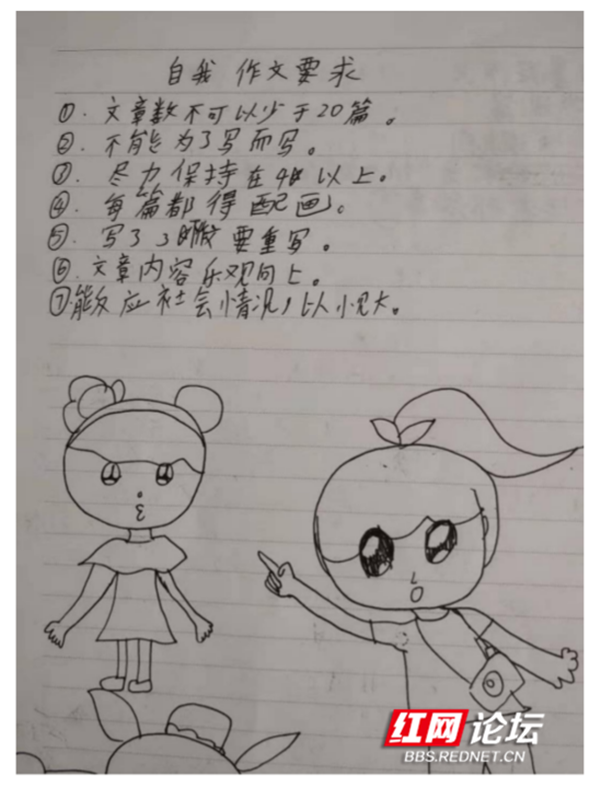 自我 作文要求
①. 文章数不可以少于20篇。
②. 不能为了写而写。
③. 尽力保持在4 以上。
④. 每篇都得配画。
⑤. 写了3 要重写。
⑥. 文章内容乐观向上。
⑦能反应社会情况，以小见大。
红网论坛
BBS.REDNET.CN